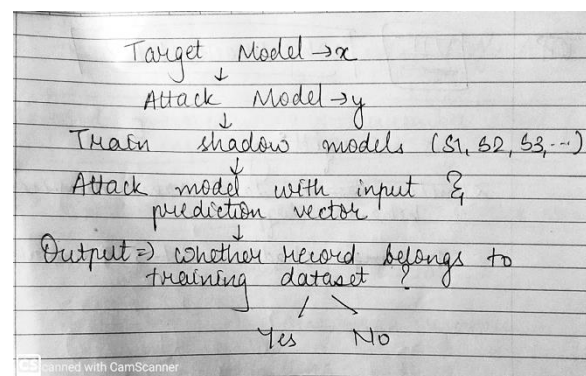 Target Model → x
↓
Attack Model → y
↓
Train shadow models (S1, S2, S3, ---)
↓
Attack model with input &
prediction vector
↓
Output => whether record belongs to
training dataset ?
Yes No
CS canned with CamScanner